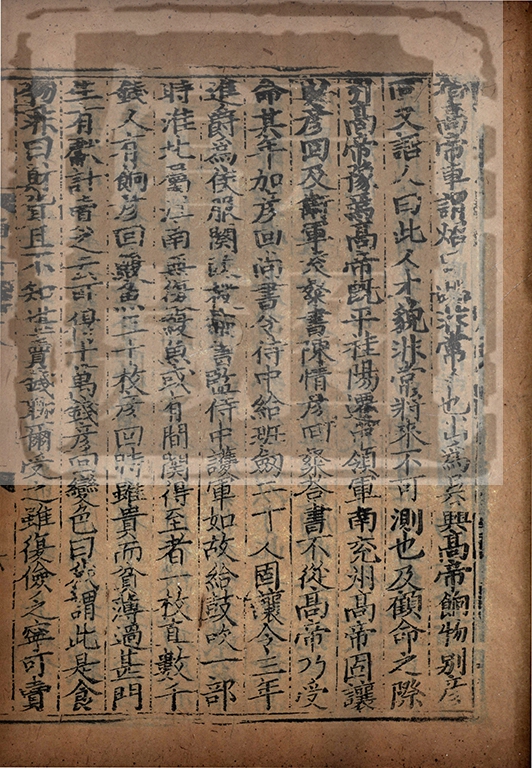 高帝車謂炤曰此非常人也出爲吳興高帝餉物別彦
回又語人曰此人才貌非常將來不可測也及顧命之際
引高帝豫焉高帝既平桂陽遷中領軍南兖州高帝固讓
與彦回及衛軍袁粲書陳情彦回粲答書不從高帝乃受
命其年加彦回尚書令侍中給班劒三十人固讓令三年
進爵爲侯服闋改授中書監侍中護軍如故給鼓吹一部
時淮北屬江南無復鰒魚或有間關得至者一枚直數千
錢人有餉彦回鰒魚三十枚彦回時雖貴而貧薄過甚門
生有獻計賣之云可得十萬錢彦回變色曰我謂此是食
物非曰財貨且不知堪賣錢聊爾受之雖復儉乏寧可賣